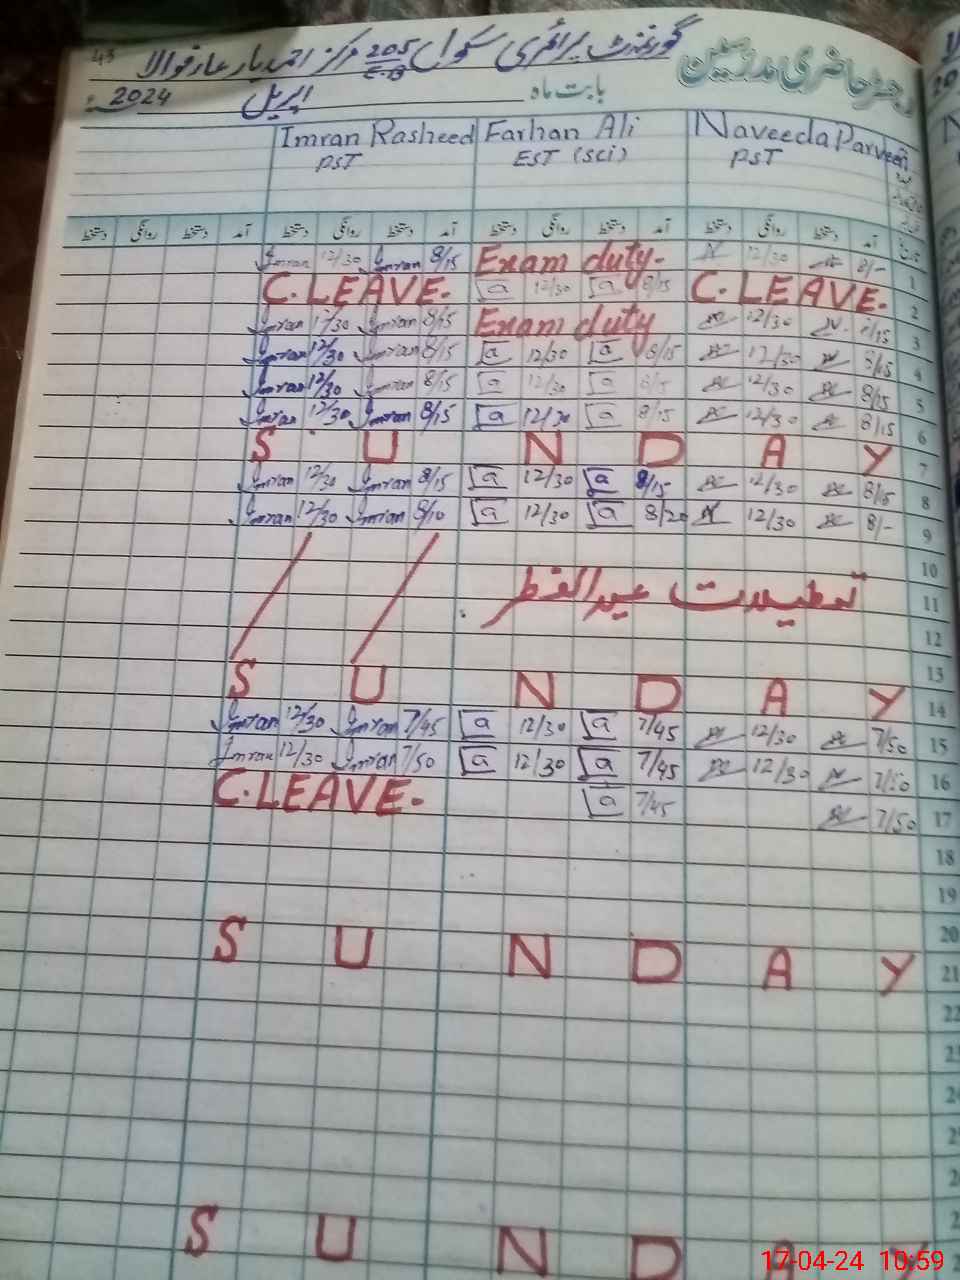 43 گورنمنٹ پرائمری سکول 205 مرکز احمد یار عارفوالا
E.B
رجسٹر حاضری مدرسین
بابت ماہ اپریل 2024ء
Imran Rasheed Farhan Ali Naveeda Parveen
PST EST (Sci) PST
دستخط روانگی دستخط آمد دستخط روانگی دستخط آمد دستخط روانگی دستخط آمد
Imran 12/30 Imran 8/15 Exam duty. 12/30 8/- 1
C. LEAVE. a 12/30 a 8/15 C. LEAVE. 2
Imran 12/30 Imran 8/15 Exam duty 12/30 8/15 3
Imran 12/30 Imran 8/15 a 12/30 a 8/15 12/30 8/15 4
Imran 12/30 Imran 8/15 a 12/30 a 8/15 12/30 8/15 5
Imran 12/30 Imran 8/15 a 12/30 a 8/15 12/30 8/15 6
S U N D A Y 7
Imran 12/30 Imran 8/15 a 12/30 a 8/15 12/30 8/15 8
Imran 12/30 Imran 8/10 a 12/30 a 8/20 12/30 8/- 9
10
تعطیلات عیدالفطر 11
12
13
S U N D A Y 14
Imran 12/30 Imran 7/45 a 12/30 a 7/45 12/30 7/50 15
Imran 12/30 Imran 7/50 a 12/30 a 7/45 12/30 7/50 16
C. LEAVE. a 7/45 7/50 17
18
19
20
S U N D A Y 21
22
23
24
S U N D A Y
17-04-24 10:59